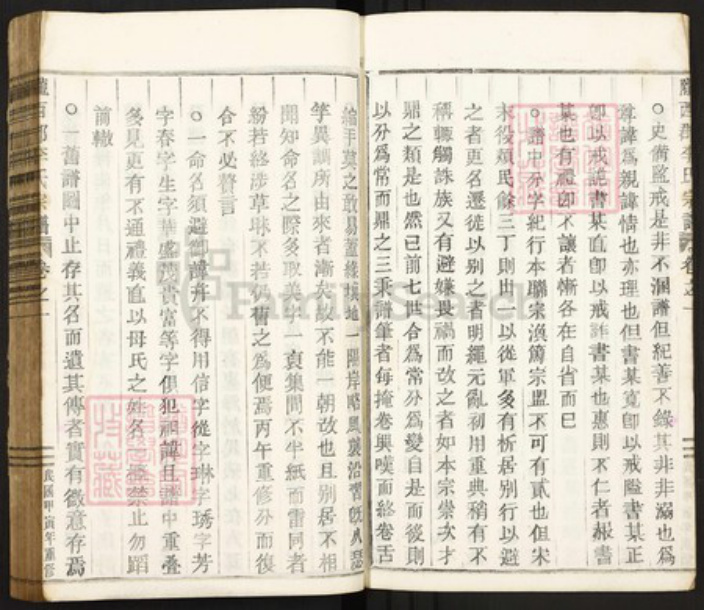 隴西郡李氏宗譜 卷之一
○史尚鑒戒是非不溷譜但紀善不錄其非非溺也為
尊諱為親諱情也亦理也但書某寬卽以戒隘書某正
卽以戒詭書某直卽以戒詐書某也惠則不仁者赧書
某也有禮卽不讓者慚各在自省而已
○譜中分字紀行本聯宗渙篤宗盟不可有貳也但宋
末役頻民餘三丁則出一以從軍多有析居別行以避
之者更名遷徙以别之者明繩元亂初用重典稍有不
稱輒觸誅族又有避嫌畏禍而改之者如本宗崇次才
鼎之類是也然已前七世合為常分為變自是而後則
以分為常而鼎之三秉譜筆者每掩卷興嘆而終卷舌
縮手莫之敢易蓋緣壤地一隔岸略風裏沿習旣久
竽異調所由來者漸矣故不能一朝改也且别居不相
聞知命名之際多取美字一袠集間不半紙而雷同者
紛若絡涉草昧不若仍舊之為便焉丙午重修分而復
合不必贅言
○一命名須避御諱并不得用信字從字琳字琇字芳
字春字生字華盛茂貴富等字俱犯祖諱且譜中重叠
多見更有不通禮義直以母氏之姓名 禁止勿蹈
前轍
○一舊譜圖中止存其名而遺其傳者實有微意存焉
隴西郡李氏宗譜 卷之一
民國甲寅年重修
FamilySearch